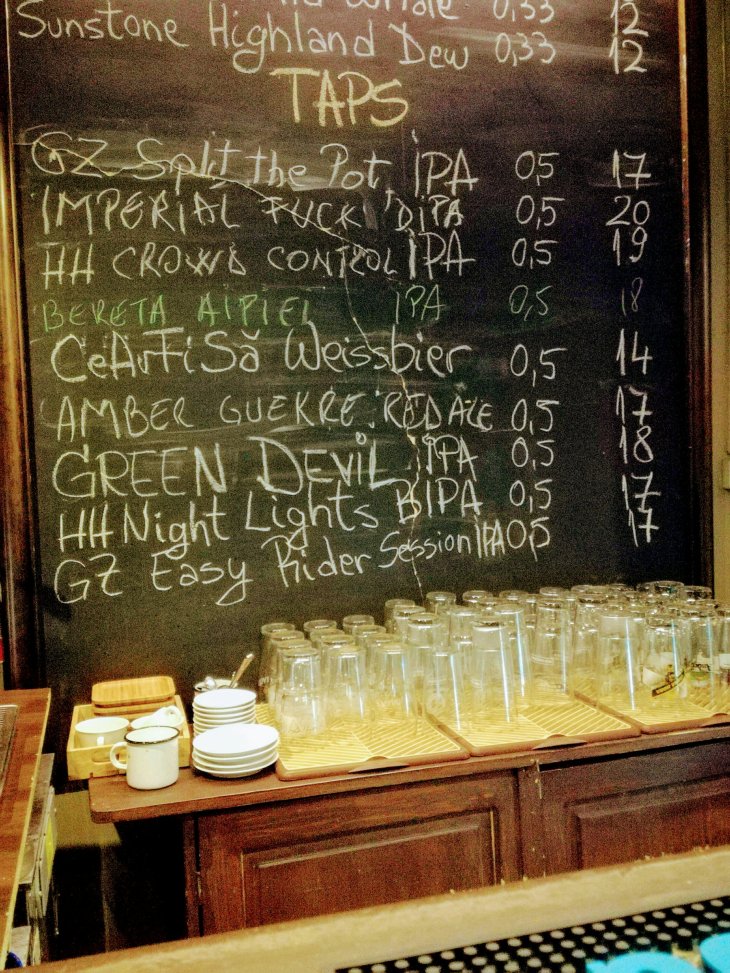 Whole 0,33 12
Sunstone Highland Dew 0,33 12
TAPS
GZ Split the Pot IPA 0,5 17
IMPERIAL FUCK DIPA 0,5 20
HH CROWD CONTROL IPA 0,5 19
BERETA AIPIEL IPA 0,5 18
CeArFiSă Weissbier 0,5 14
AMBER GUEKRE RED ALE 0,5 17
GREEN DEVIL IPA 0,5 18
HH Night Lights BIPA 0,5 17
GZ Easy Rider Session IPA 0,5 17